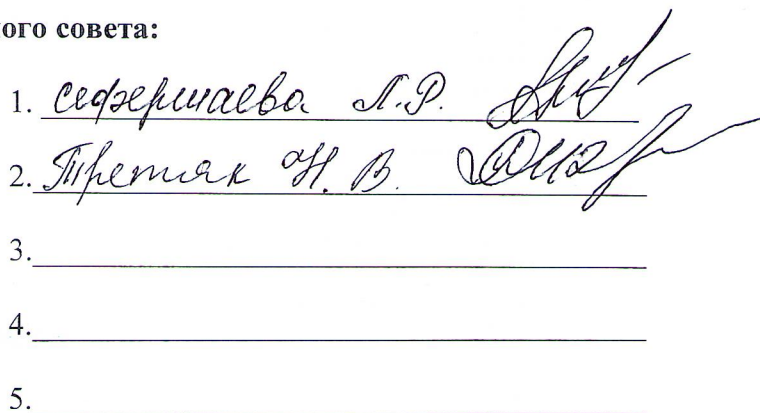 ного совета:
1. Сефершаева Л.Р.
2. Третяк Н. В.
3.
4.
5.